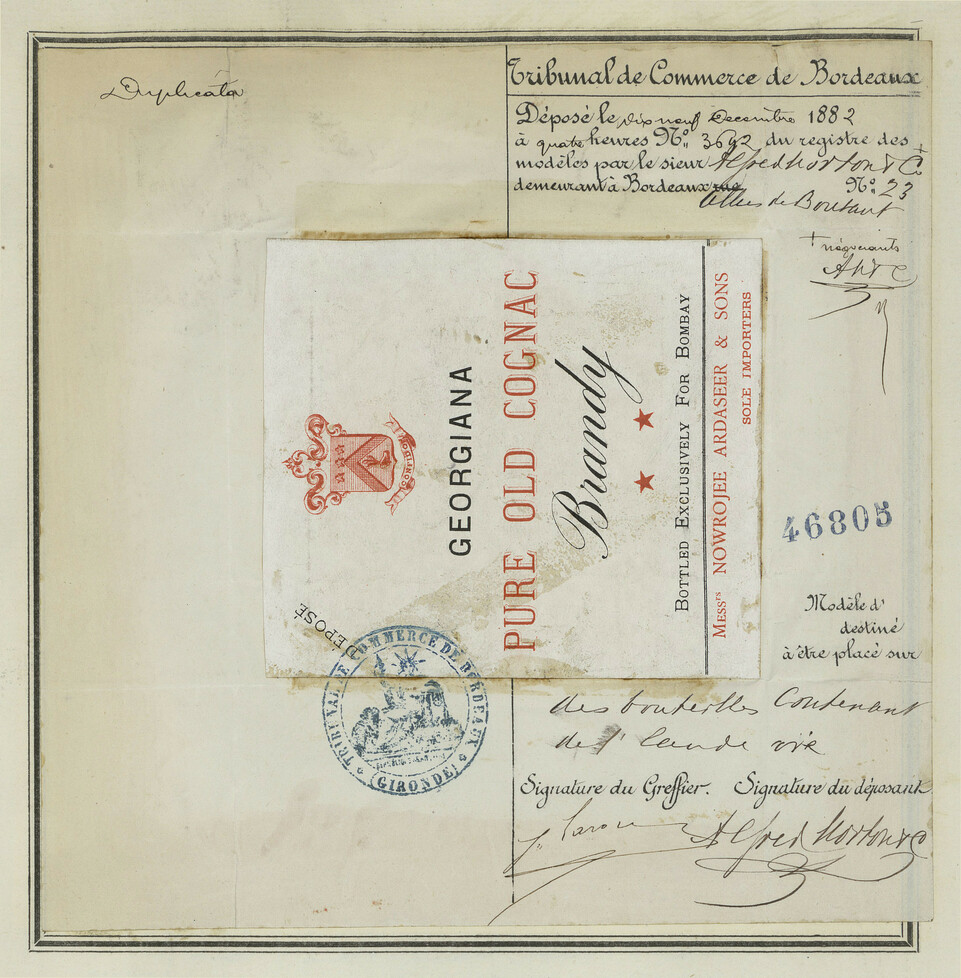 Duplicata
Tribunal de Commerce de Bordeaux
Déposé le dix neuf Decembre 1882
à quatre heures No. 3692 du registre des
modèles par le sieur Alfred Morton & Co +
demeurant à Bordeaux rue No. 23
Allées de Boutaut
+ négociants
AM & C
DEPOSÉ
GEORGIANA
PURE OLD COGNAC
Brandy
★ ★
BOTTLED EXCLUSIVELY FOR BOMBAY
MESSRS NOWROJEE ARDASEER & SONS
SOLE IMPORTERS
46805
Modèle d'
destiné
à être placé sur
des bouteilles contenant
de l'eau de vie
TRIBUNAL DE COMMERCE DE BORDEAUX
(GIRONDE)
Signature du Greffier. Signature du déposant
Alfred Morton & Co